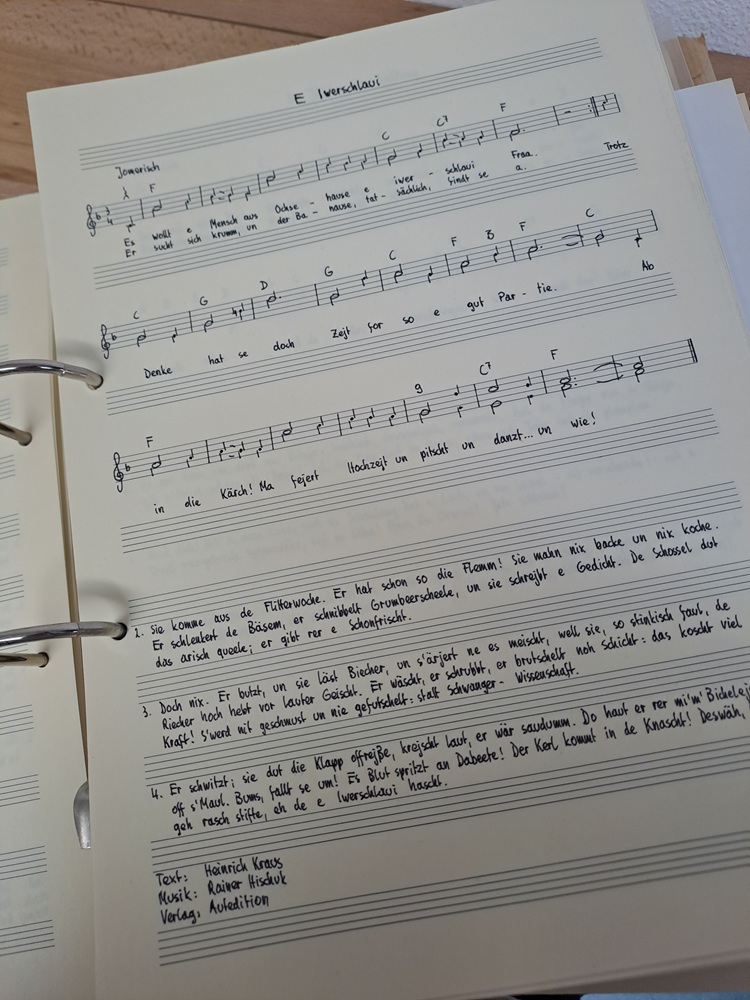 E Iwerschlaui
Jomerisch
F C C7 F
Es wollt e Mensch aus Ochse - hause e iwer - schlaui Fraa. Trotz
Er sucht sich krumm, un der Ba - nause, tat - sächlich, findt se a.
C G D G C F B F C
Denke hat se doch Zejt for so e gut Par - tie. Ab
F g C7 F
in die Kärch! Ma fejert Hochzejt un pitscht un danzt... un wie!
1. Sie komme aus de Flitterwoche. Er hat schon so die Flemm! Sie mahn nix backe un nix koche.
Er schlenkert de Bäsem, er schnibbelt Grumbeerscheele, un sie schrejbt e Gedicht. De Schossel dut
das arisch queele; er gibt rer e Schonfrischt.
3. Doch nix. Er butzt, un sie läst Biecher, un s'ärjert ne es meischt, well sie, so stinkisch faul, de
Riecher hoch hebt vor lauter Geischt. Er wäscht, er schrubbt, er brutschelt noh Schicht: das koscht viel
Kraft! S'werd nit geschmust un nie gefutschelt: statt Schwanger - Wissenschaft.
4. Er schwitzt; sie dut die Klapp offrejße, krejscht laut, er wär saudumm. Do haut er rer mi'm' Bichelej
off s'Maul. Bums, fallt se um! Es Blut spritzt an Dabeete! Der Kerl kommt in de Knascht! Deswäh,
geh rasch stifte, eh de e Iwerschlaui hascht.
Text: Heinrich Kraus
Musik: Rainer Hischuk
Verlag: Aufedition